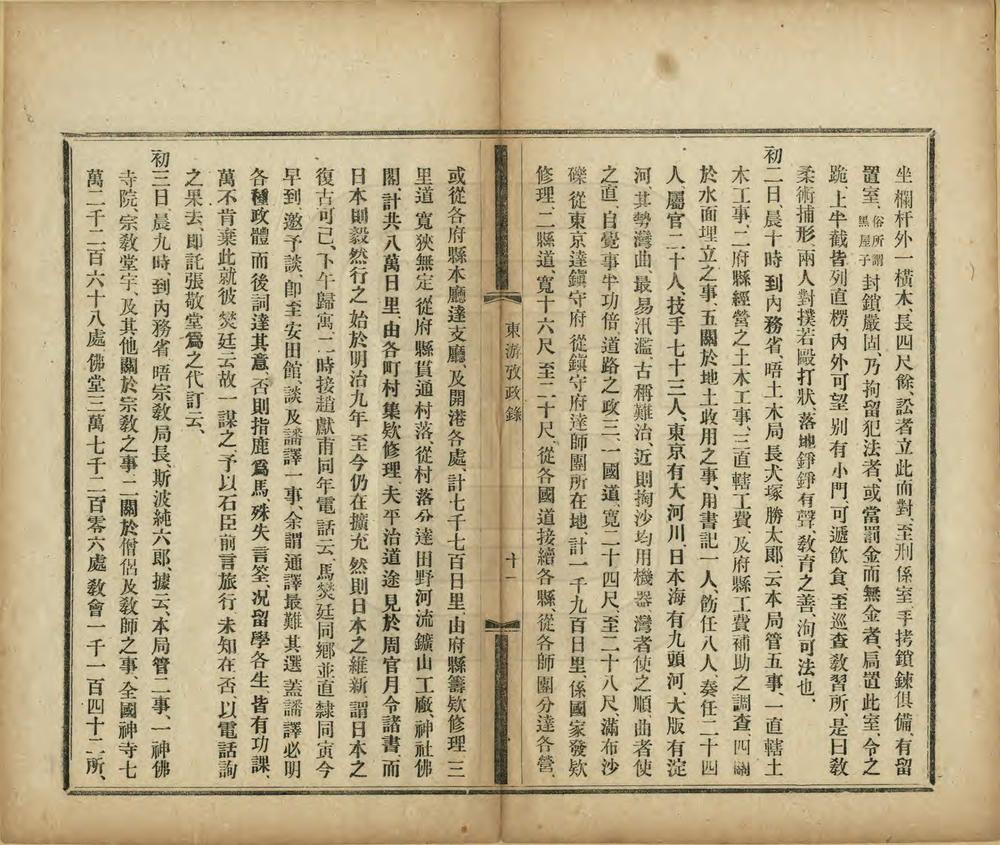 坐欄杆外一橫木、長四尺餘、訟者立此面對、至刑係室、手拷鎖鍊俱備、有留
置室、俗所謂黑屋子封鎖嚴固、乃拘留犯法者、或當罰金而無金者、局置此室、令之
跪上半截皆列直楞、內外可望、別有小門、可遞飲食、至巡查教習所、是日教
柔術捕形、兩人對撲若毆打狀、落地錚錚有聲、教育之善、洵可法也、
初二日、晨十時到內務省、晤土木局長犬塚勝太郎、云本局管五事、一直轄土
木工事、二府縣經營之土木工事、三直轄工費、及府縣工費補助之調查、四關
於水面埋立之事、五關於地土收用之事、用書記一人、飭任八人、奏任二十四
人、屬官二十人、技手七十三人、東京有大河川、日本海有九頭河、大版有淀
河、其勢灣曲、最易汛濫、古稱難治、近則掏沙均用機器、灣者使之順、曲者使
之直、自覺事半功倍、道路之政三、一國道、寬二十四尺、至二十八尺、滿布沙
礫、從東京達鎭守府、從鎭守府達師團所在地、計一千九百日里、係國家發欵
修理、二縣道、寬十六尺、至二十尺、從各國道接續各縣、從各師團分達各營、
東游攷政錄
十一
或從各府縣本廳達支廳、及開港各處、計七千七百日里、由府縣籌欵修理、三
里道、寬狹無定、從府縣貫通村落、從村落分達田野河流鑛山工廠神社佛
閣、計共八萬日里、由各町村集欵修理、夫平治道途、見於周官月令諸書、而
日本則毅然行之、始於明治九年、至今仍在擴充、然則日本之維新、謂日本之
復古可已、下午歸寓、二時接趙獻甫同年電話云、馬焚廷同鄉並直隸同寅今
早到、邀予談、卽至安田館、談及譒譯一事、余謂通譯最難其選、蓋譒譯必明
各種政體、而後詞達其意、否則指鹿爲馬、殊失言筌、況留學各生、皆有功課、
萬不肯棄此就彼、焚廷云故一謀之、予以石臣前言旅行、未知在否、以電話詢
之果去、即託張敬堂爲之代訂云、
初三日、晨九時、到內務省、晤宗教局長斯波純六郎、據云、本局管二事、一神佛
寺院、宗教堂宇、及其他關於宗教之事、二關於僧侶及教師之事、全國神寺七
萬二千二百六十八處、佛堂三萬七千二百零六處、教會一千一百四十二所、